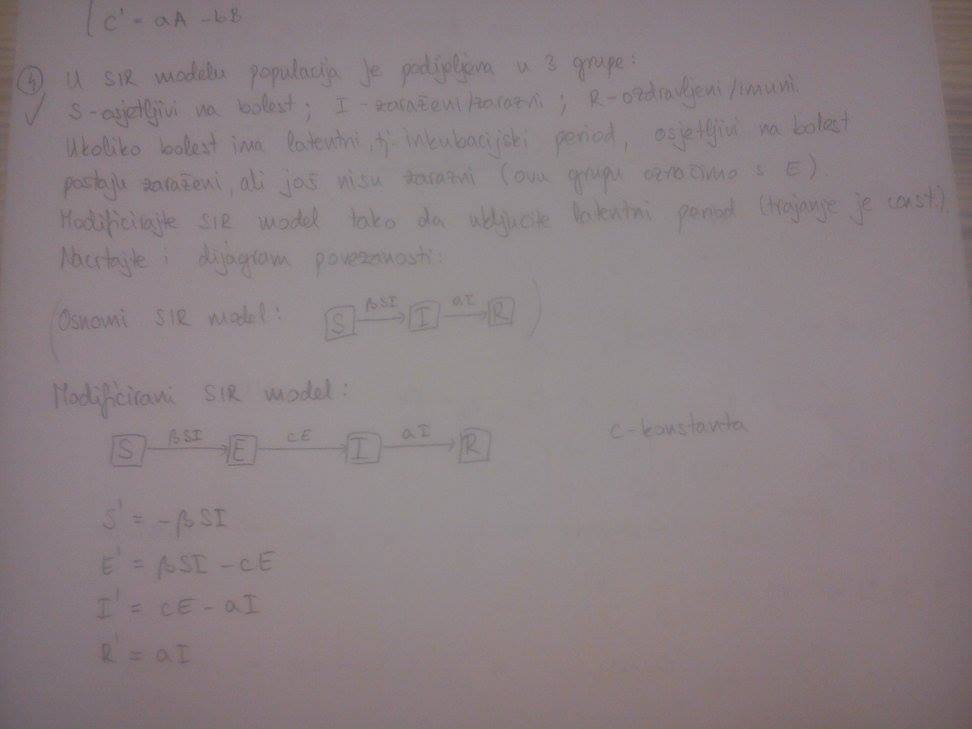 C' = aA - bB
④ U SIR modelu populacija je podijeljena u 3 grupe:
S-osjetljivi na bolest ; I - zaraženi/zarazni ; R-ozdravljeni/imuni.
Ukoliko bolest ima latentni, tj. inkubacijski period, osjetljivi na bolest
postaju zaraženi, ali još nisu zarazni (ovu grupu označimo s E).
Modificirajte SIR model tako da uključite latentni period (trajanje je const.)
Nacrtajte i dijagram povezanosti:
(Osnovni SIR model: S βSI I aI R)
Modificirani SIR model:
S βSI E cE I aI R c-konstanta
S' = -βSI
E' = βSI - cE
I' = cE - aI
R' = aI